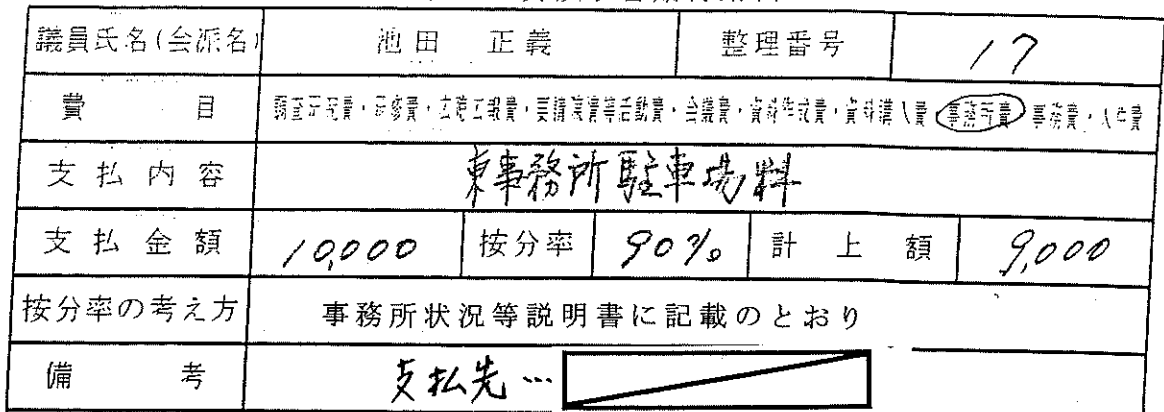 議員氏名(会派名) 池田 正義 整理番号 17
費目 調査研究費・研修費・広聴広報費・要請陳情等活動費・会議費・資料作成費・資料購入費・事務所費・事務費・人件費
支払内容 東事務所駐車場料
支払金額 10,000 按分率 90% 計上額 9,000
按分率の考え方 事務所状況等説明書に記載のとおり
備考 支払先…